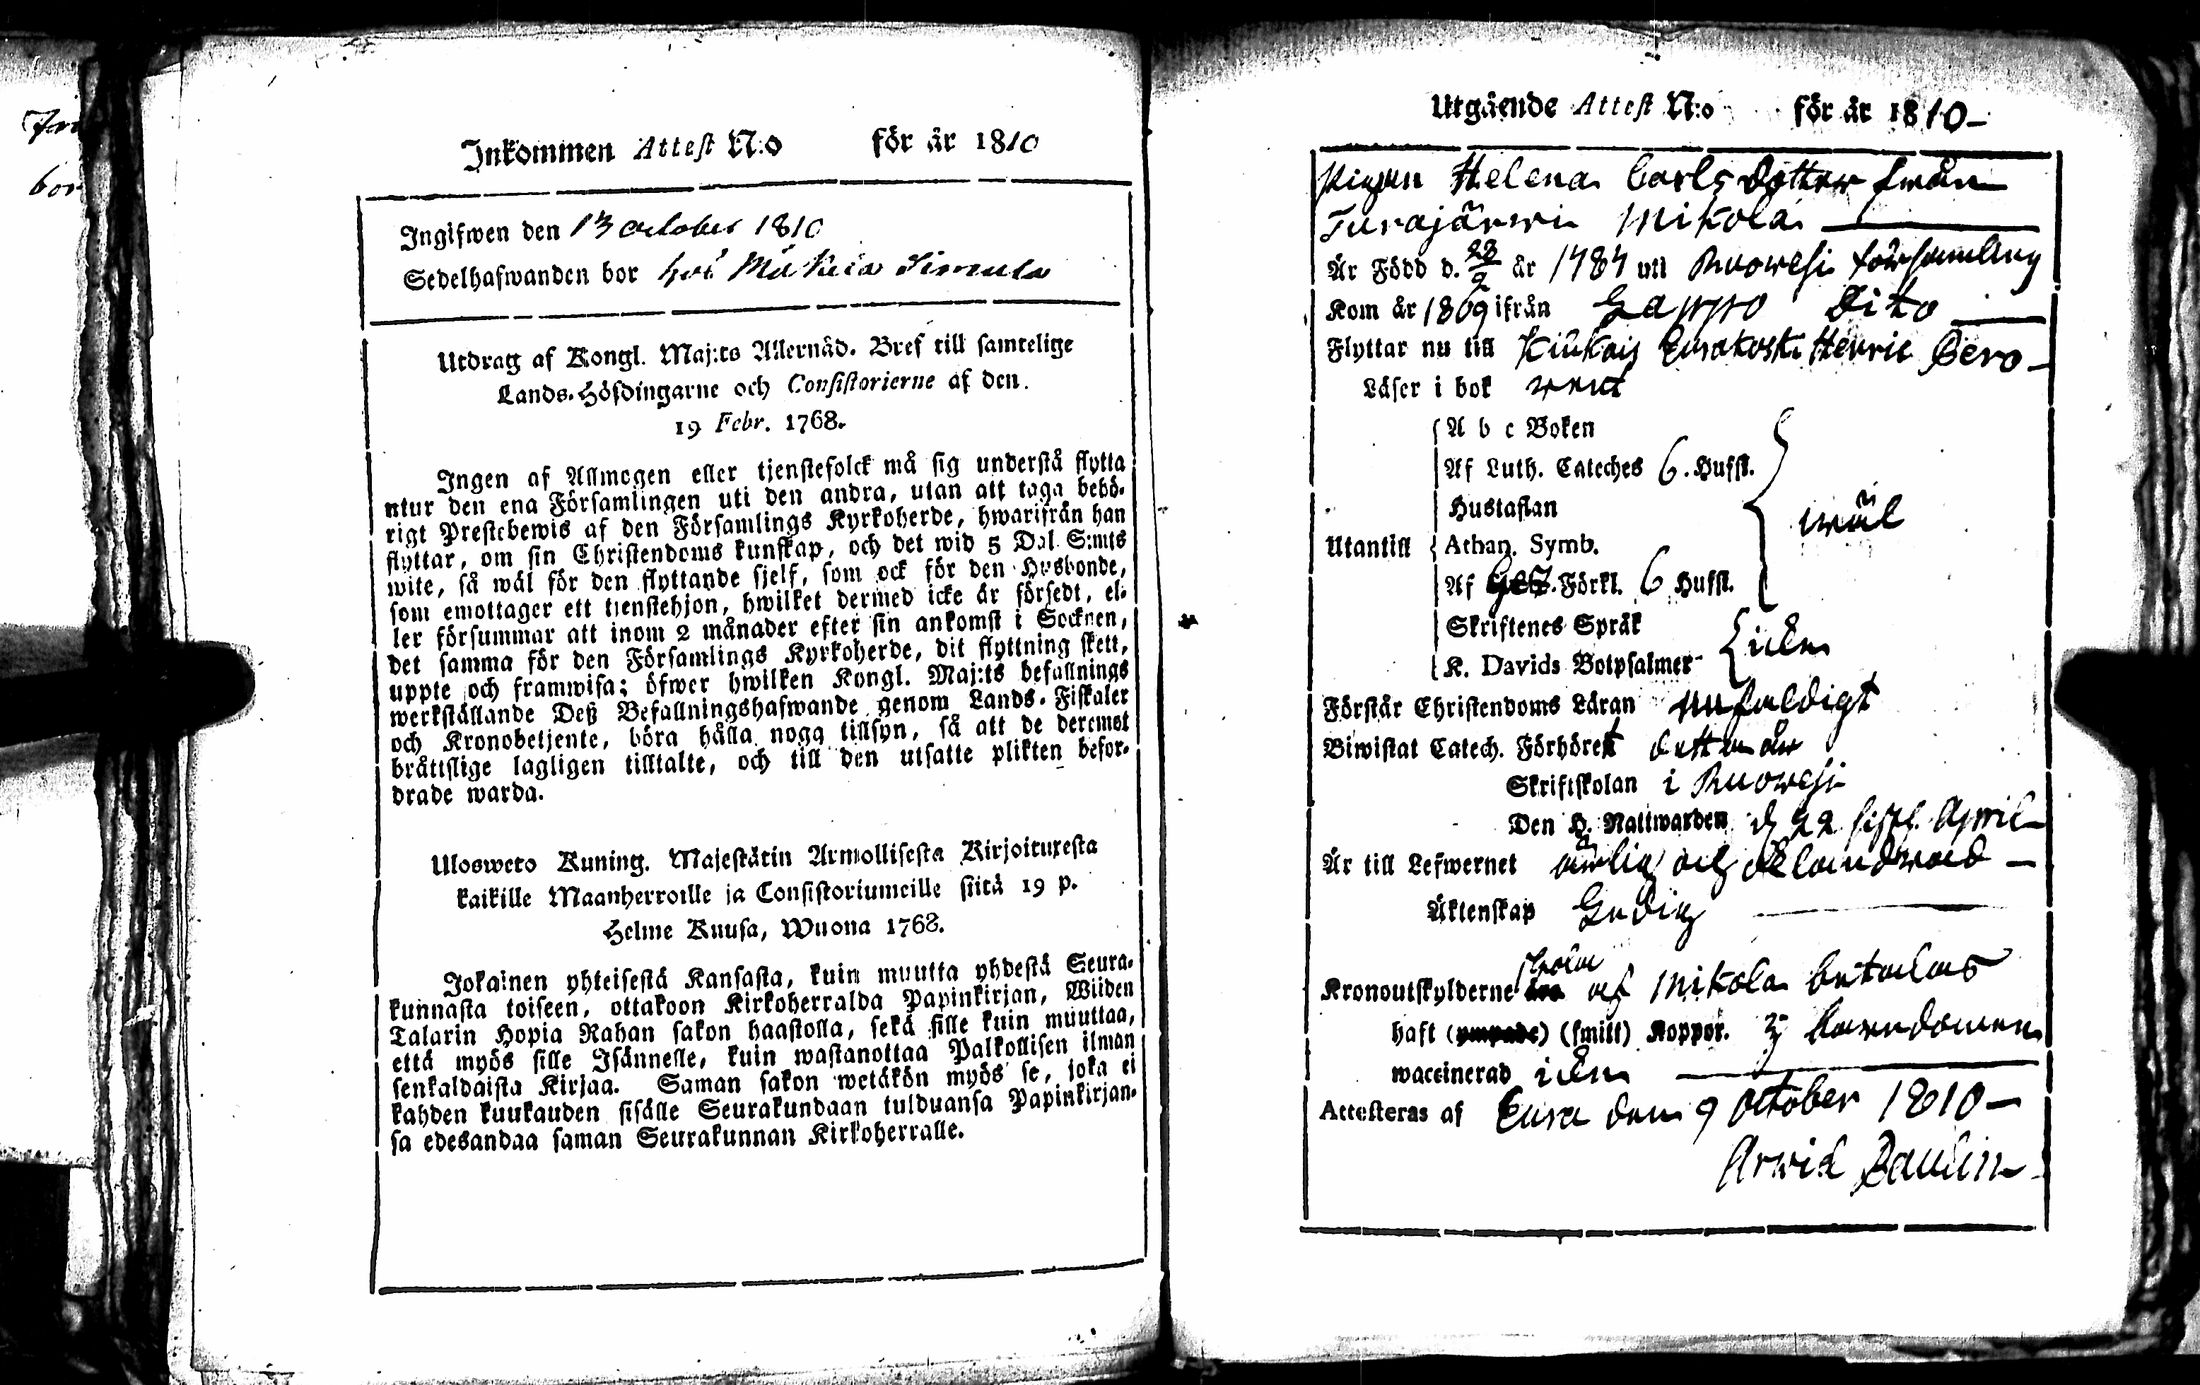 Inkommen Attest N:o för år 1810
Ingifwen den 13 october 1810
Sedelhafwanden bor hos Simula
Utdrag af Kongl. Maj:ts Allernåd. Bref till samtelige
Lands-Höfdingarne och Consistorierne af den
19 Febr. 1768.
Ingen af Allmogen eller tjenstefolck må sig understå flytta
utur den ena Församlingen uti den andra, utan att taga behö-
rigt Prestebewis af den Församlings Kyrkoherde, hwarifrån han
flyttar, om sin Christendoms kunskap, och det wid 5 Dal. S:mts
wite, så wäl för den flyttande sjelf, som ock för den Husbonde,
som emottager ett tjenstehjon, hwilket dermed icke är försedt, el-
ler försummar att inom 2 månader efter sin ankomst i Socknen,
det samma för den Församlings Kyrkoherde, dit flyttning skett,
uppte och framwisa; öfwer hwilken Kongl. Maj:ts befallnings
werkställande Deß Befallningshafwande genom Lands-Fiskaler
och Kronobetjente, böra hålla noga tillsyn, så att de deremot
bråttslige lagligen tilltalte, och till den utsatte plikten befor-
drade warda.
Ulosweto Kuning. Majestätin Armollisesta Kirjoituxesta
kaikille Maanherroille ja Consistoriumeille siitä 19 p.
Helme Kuusa, Wuona 1768.
Jokainen yhteisestä Kansasta, kuin muutta yhdestä Seura-
kunnasta toiseen, ottakoon Kirkoherralda Papinkirjan, Wiiden
Talarin Hopia Rahan sakon haastolla, sekä sille kuin muuttaa,
että myös sille Isännelle, kuin wastanottaa Palkollisen ilman
senkaldaista Kirjaa. Saman sakon wetäkön myös se, joka ei
kahden kuukauden sisälle Seurakundaan tulduansa Papinkirjan-
sa edesandaa saman Seurakunnan Kirkoherralle.
Utgående Attest N:o för år 1810
Pigan Helena Carls dotter från
Turajärwi Mikola
Är Född d. 28/2 år 1784 uti Ruowesi församling
Kom år 1809 ifrån Gappo dito
Flyttar nu till Kiukais Eurakoski Henric Bero
Läser i bok rent
A b c Boken
Af Luth. Cateches 6. Hufst.
Hustaflan
Utantill Athan. Symb. wäl
Af Förkl. 6 Hufst.
Skriftenes Språk
K. Davids Botpsalmer
Förstår Christendoms Läran enfaldigt
Biwistat Catech. Förhöret detta år
Skriftskolan i Ruowesi
Den H. Nattwarden d 22 sistl. April
Är till Lefwernet ärlig och
Äktenskap Ledig
Kronoutskylderne skola af Mikola betalas
haft (smitt) Koppor. i barndomen
waccinerad
Attesteras af Eura den 9 October 1810
Arwid Paulin